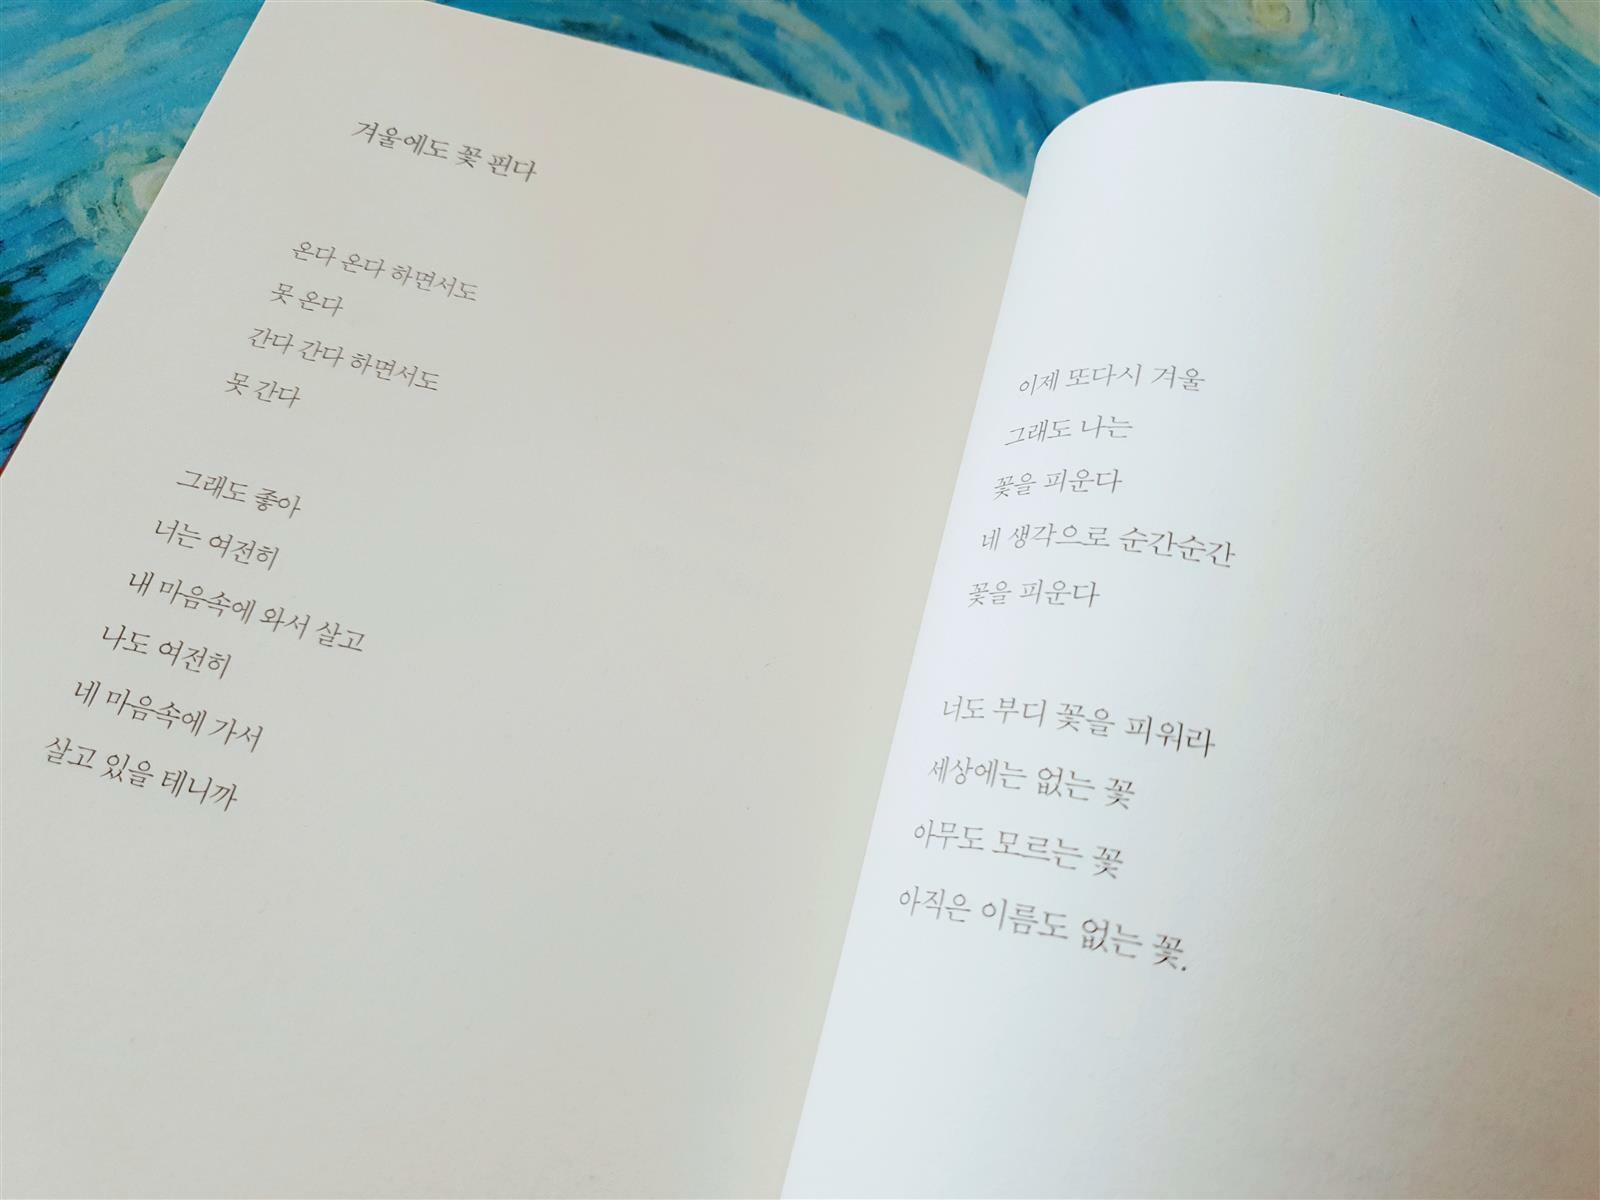 겨울에도 꽃 핀다
온다 온다 하면서도
못 온다
간다 간다 하면서도
못 간다
그래도 좋아
너는 여전히
내 마음속에 와서 살고
나도 여전히
네 마음속에 가서
살고 있을 테니까
이제 또다시 겨울
그래도 나는
꽃을 피운다
네 생각으로 순간순간
꽃을 피운다
너도 부디 꽃을 피워라
세상에는 없는 꽃
아무도 모르는 꽃
아직은 이름도 없는 꽃.